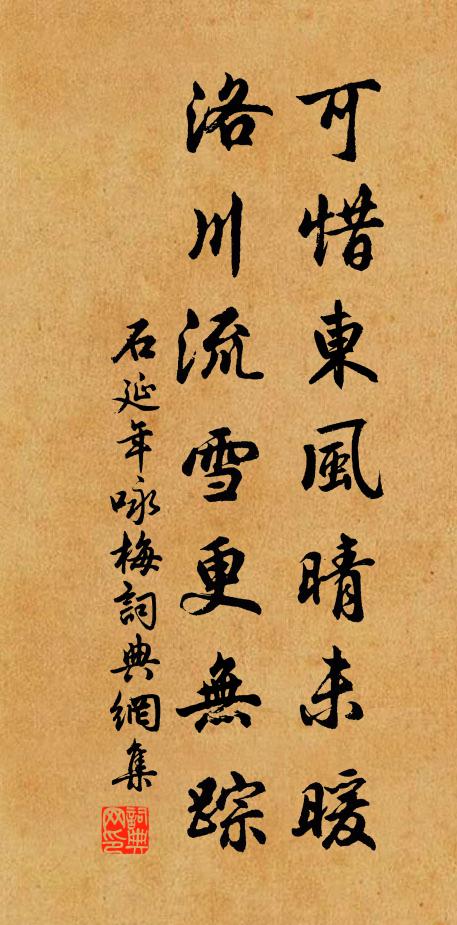 可惜東風晴未暖
洛川流雪更無踪
石延年咏梅詞典網集
詞典网印